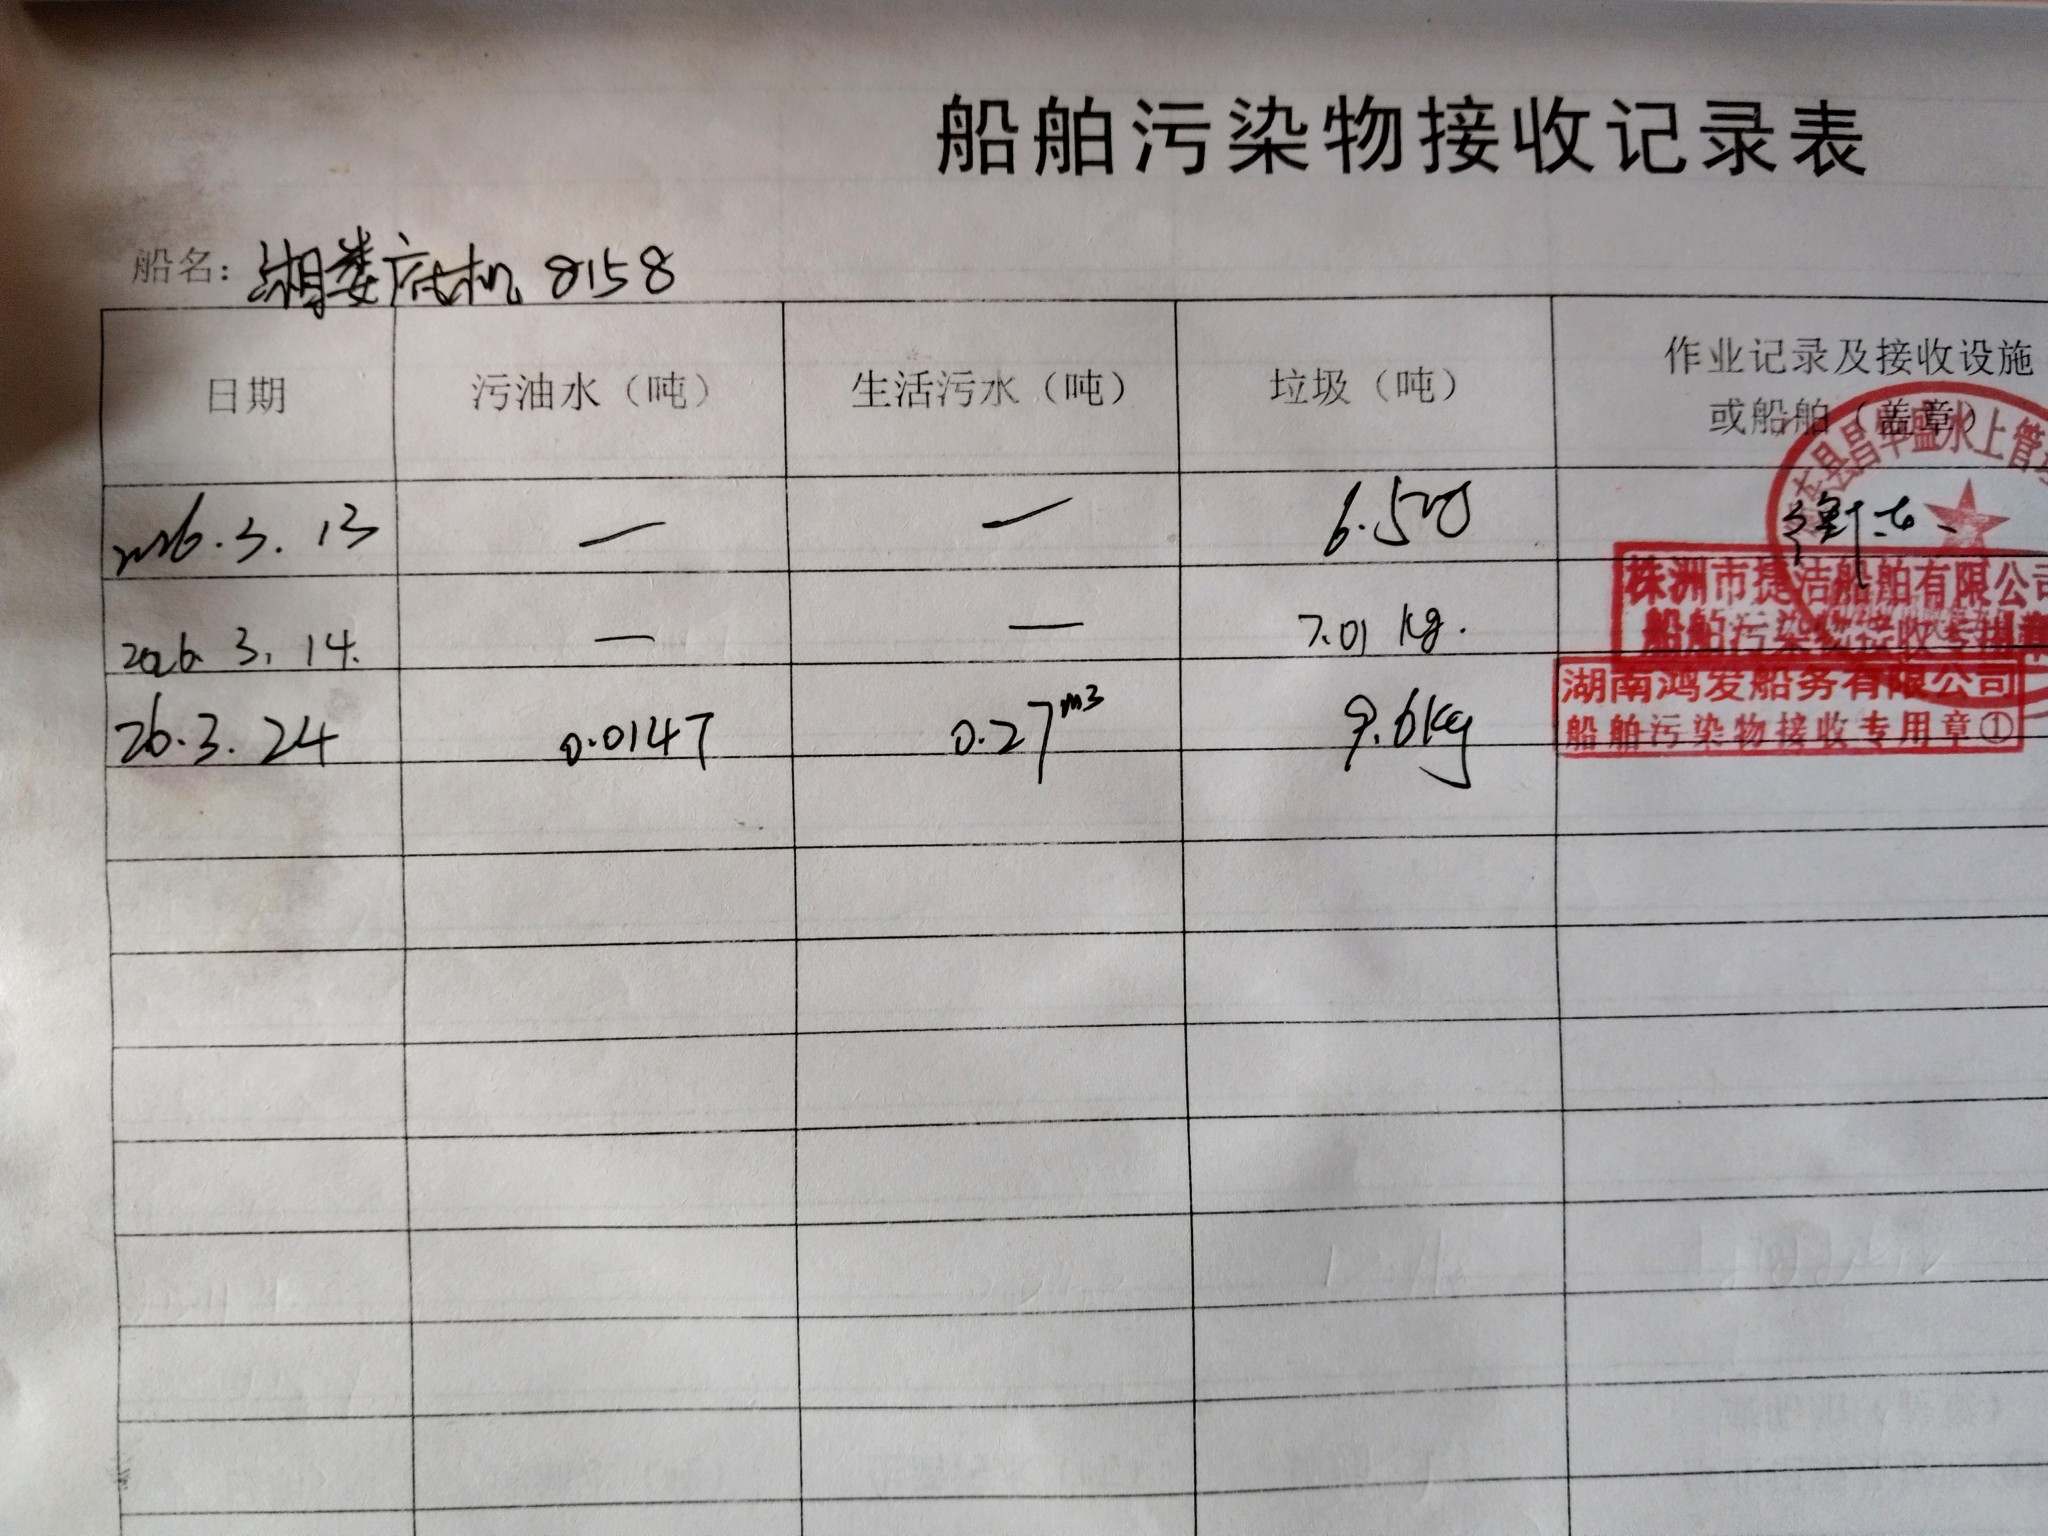 船舶污染物接收记录表
船名：湘娄底机8158
日期 污油水（吨） 生活污水（吨） 垃圾（吨） 作业记录及接收设施
或船舶（盖章）
2026.3.13 — — 6.5
2026.3.14. — — 7.01 kg.
株洲市捷洁船舶有限公司
船舶污染物接收专用章
26.3.24 0.0147 0.27m3 9.6kg
湖南鸿发船务有限公司
船舶污染物接收专用章①